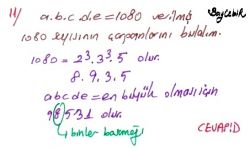 11/ a.b.c.d.e=1080 verilmiş
1080 sayısının çarpanlarını bulalım.
1080 = 2³.3³.5 olur.
8.9.3.5
abcde = en büyük olması için
98531 olur.
binler basamağı
CEVAP:D